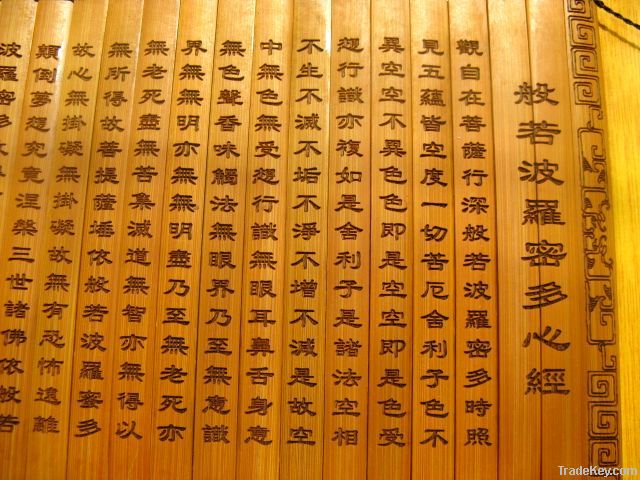 般若波羅密多心經
觀自在菩薩行深般若波羅密多時照
見五蘊皆空度一切苦厄舍利子色不
異空空不異色色即是空空即是色受
想行識亦複如是舍利子是諸法空相
不生不滅不垢不淨不增不減是故空
中無色無受想行識無眼耳鼻舌身意
無色聲香味觸法無眼界乃至無意識
界無無明亦無無明盡乃至無老死亦
無老死盡無苦集滅道無智亦無得以
無所得故菩提薩埵依般若波羅蜜多
故心無掛礙無掛礙故無有恐怖遠離
顛倒夢想究竟涅槃三世諸佛依般若
波羅密多故
TradeKey.com